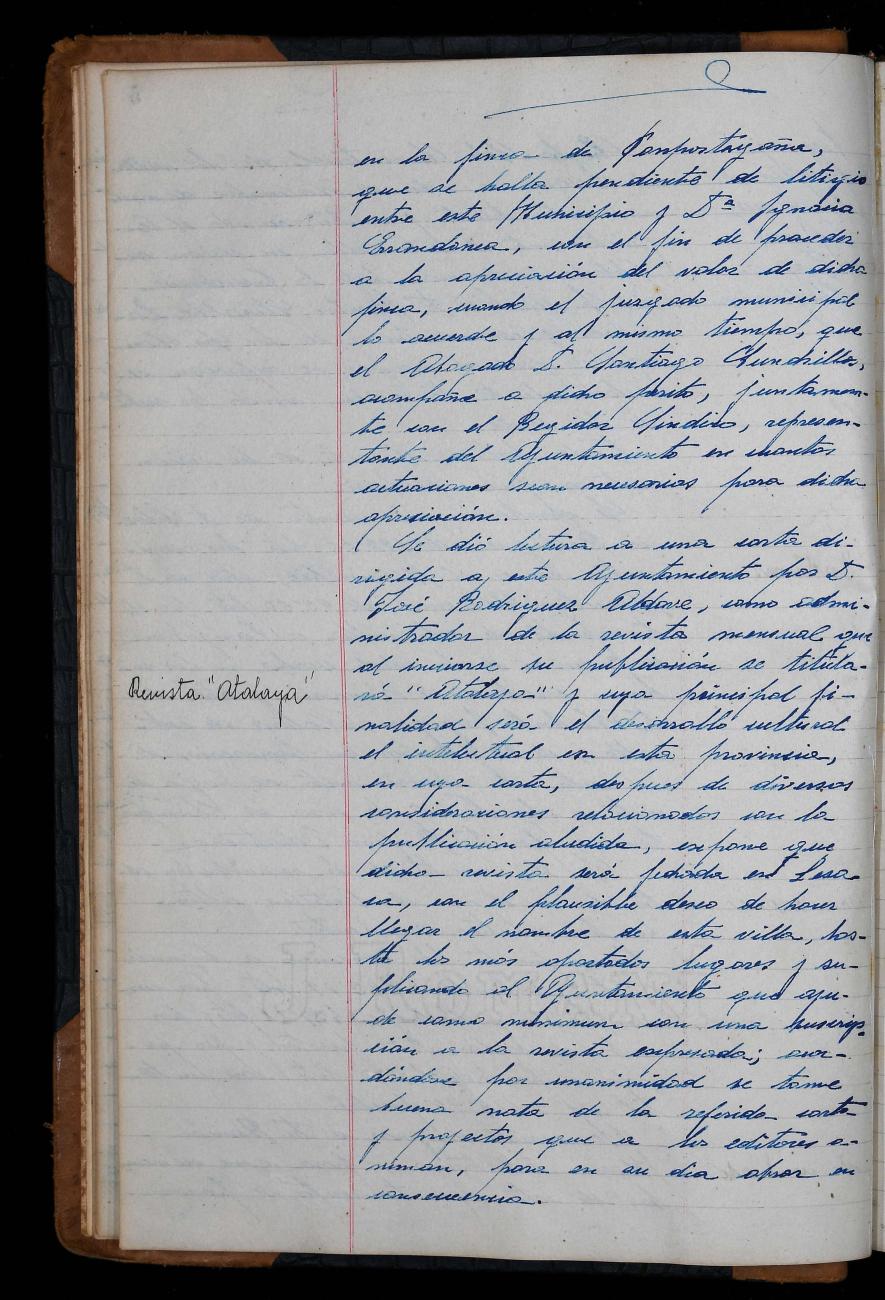 en la finca de
que se halla pendiente de litigio
entre este Municipio y Dª Ignacia
Errandonea, con el fin de proceder
a la apreciación del valor de dicha
finca, cuando el juzgado municipal
lo acuerde y al mismo tiempo, que
el Abogado D. Santiago
acompañe a dicho perito, juntamen-
te con el Regidor Síndico, represen-
tante del Ayuntamiento en cuantas
actuaciones sean necesarias para dicha
apreciación.
Se dió lectura a una carta di-
rigida a este Ayuntamiento por D.
José Rodriguez Aldave, como admi-
nistrador de la revista mensual que
al iniciarse su publicación se titula-
Revista "Atalaya"
rá "Atalaya" y cuya principal fi-
nalidad será el desarrollo cultural
el intelectual en esta provincia,
en cuya carta, despues de diversas
consideraciones relacionadas con la
publicación aludida, expone que
dicha revista será fechada en Lesa-
ca, con el plausible deseo de hacer
llegar el nombre de esta villa, has-
ta los más apartados lugares y su-
plicando al Ayuntamiento que ayu-
de como minimum con una suscrip-
ción a la revista expresada; acor-
dándose por unanimidad se tome
buena nota de la referida carta
y proyectos que a los editores a-
niman, para en su dia obrar en
consecuencia.